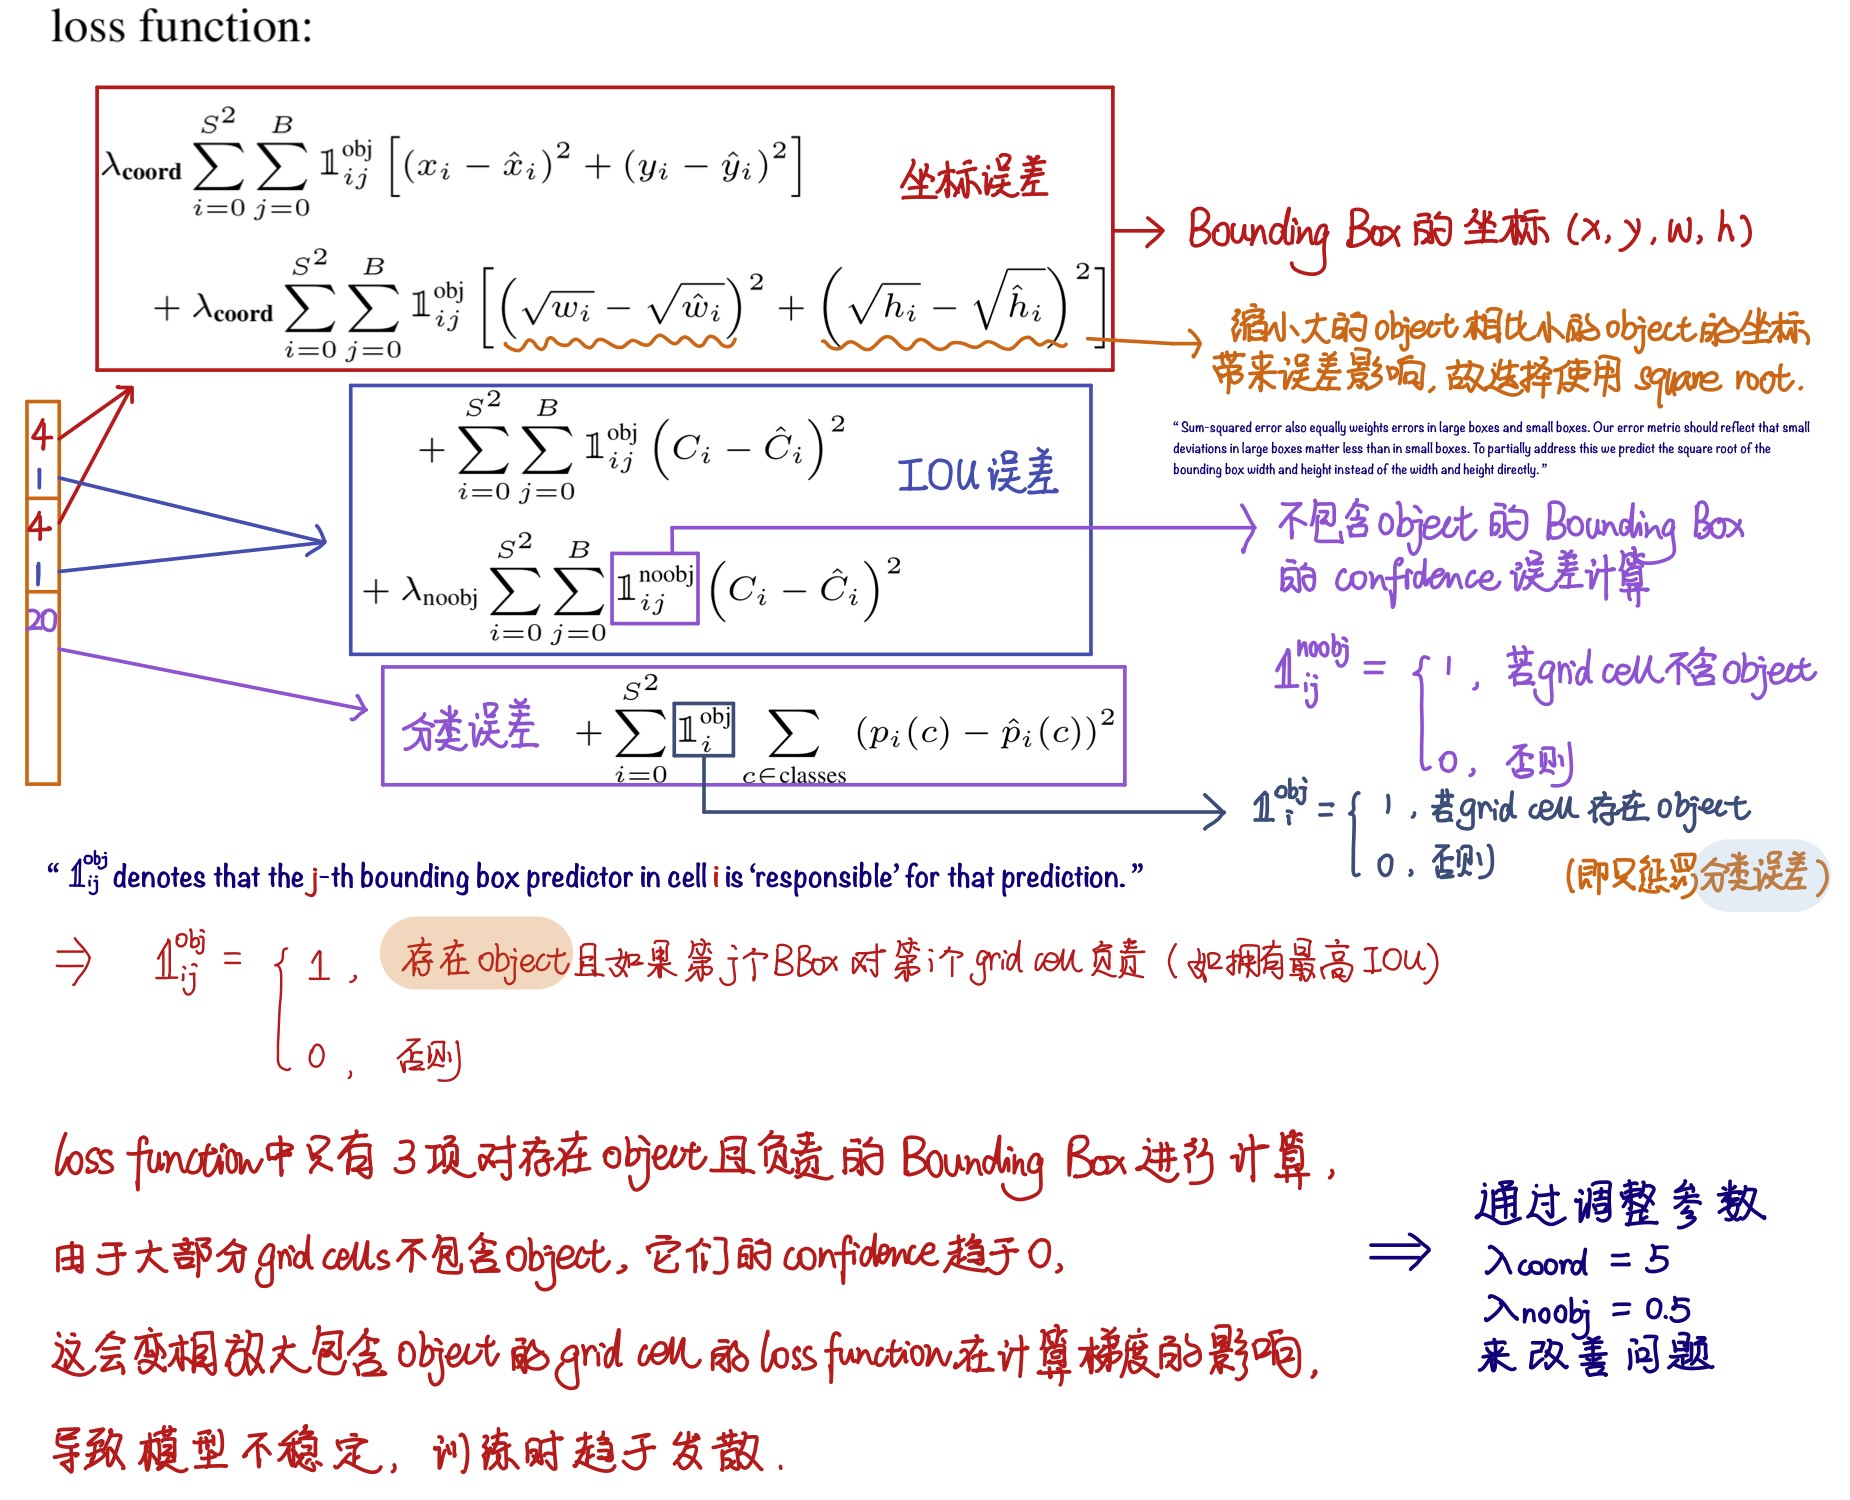 loss function:
λcoord ∑_{i=0}^{S²} ∑_{j=0}^{B} 𝟙_{ij}^{obj} [(x_i − x̂_i)² + (y_i − ŷ_i)²]
坐标误差
+ λcoord ∑_{i=0}^{S²} ∑_{j=0}^{B} 𝟙_{ij}^{obj} [(√w_i − √ŵ_i)² + (√h_i − √ĥ_i)²]
Bounding Box 的坐标 (x, y, w, h)
缩小大的object相比小的object的坐标
带来误差影响,故选择使用 square root.
“ Sum-squared error also equally weights errors in large boxes and small boxes. Our error metric should reflect that small
deviations in large boxes matter less than in small boxes. To partially address this we predict the square root of the
bounding box width and height instead of the width and height directly. ”
4
1
4
1
20
+ ∑_{i=0}^{S²} ∑_{j=0}^{B} 𝟙_{ij}^{obj} (C_i − Ĉ_i)²
IOU误差
+ λnoobj ∑_{i=0}^{S²} ∑_{j=0}^{B} 𝟙_{ij}^{noobj} (C_i − Ĉ_i)²
不包含object 的 Bounding Box
的 confidence 误差计算
𝟙_{ij}^{noobj} = { 1, 若grid cell不含object
0, 否则
分类误差
+ ∑_{i=0}^{S²} 𝟙_{i}^{obj} ∑_{c∈classes} (p_i(c) − p̂_i(c))²
𝟙_{i}^{obj} = { 1, 若grid cell 存在object
0, 否则
(即只惩罚分类误差)
“ 𝟙_{ij}^{obj} denotes that the j-th bounding box predictor in cell i is ‘responsible’ for that prediction. ”
⇒ 𝟙_{ij}^{obj} = { 1, 存在object且如果第j个BBox对第i个grid cell负责 (如拥有最高IOU)
0, 否则
loss function中只有3项对存在object且负责的 Bounding Box进行计算,
由于大部分grid cells不包含object, 它们的confidence趋于0,
这会变相放大包含object的grid cell的loss function在计算梯度的影响,
导致模型不稳定, 训练时趋于发散.
⇒ 通过调整参数
λcoord = 5
λnoobj = 0.5
来改善问题